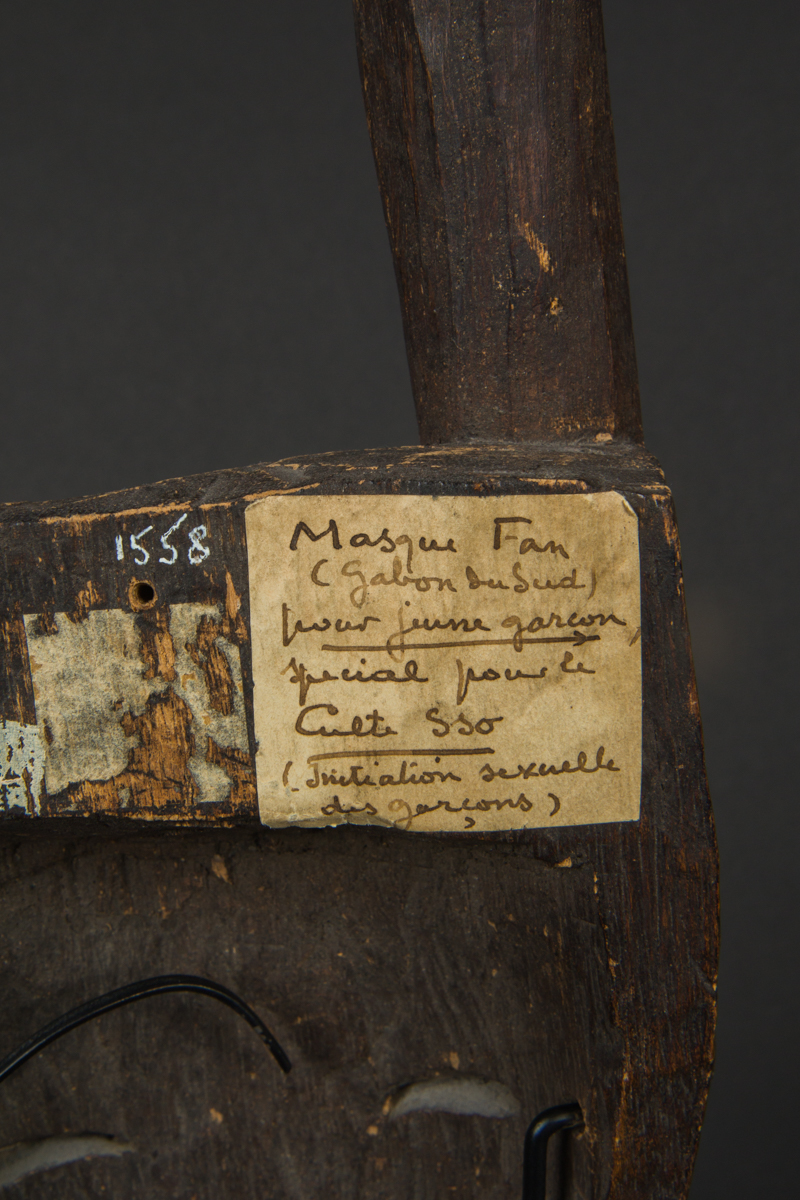 1558
Masque Fan
(Gabon du Sud)
pour jeune garçon,
special pour le
Culte Sso
(Initiation sexuelle
des garçons)